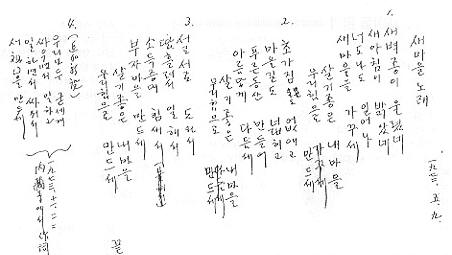 새마을 노래
1.
새벽종이 울렸네
새아침이 밝았네
너도나도 일어나
새마을을 가꾸세
살기좋은 내마을
우리힘으로 만드세
2.
초가집 없애고
마을길도 넓히고
푸른동산 만들어
아름답게 다듬세
살기좋은 내마을
우리힘으로 만드세
서로서로 도와서
땀흘려서 일해서
소득증대 힘써서
부자마을 만드세
살기좋은 내마을
우리힘으로 만드세
끝
4.
우리모두 굳세게
싸우면서 일하고
일하면서 싸워서
만드세
에서 作詞